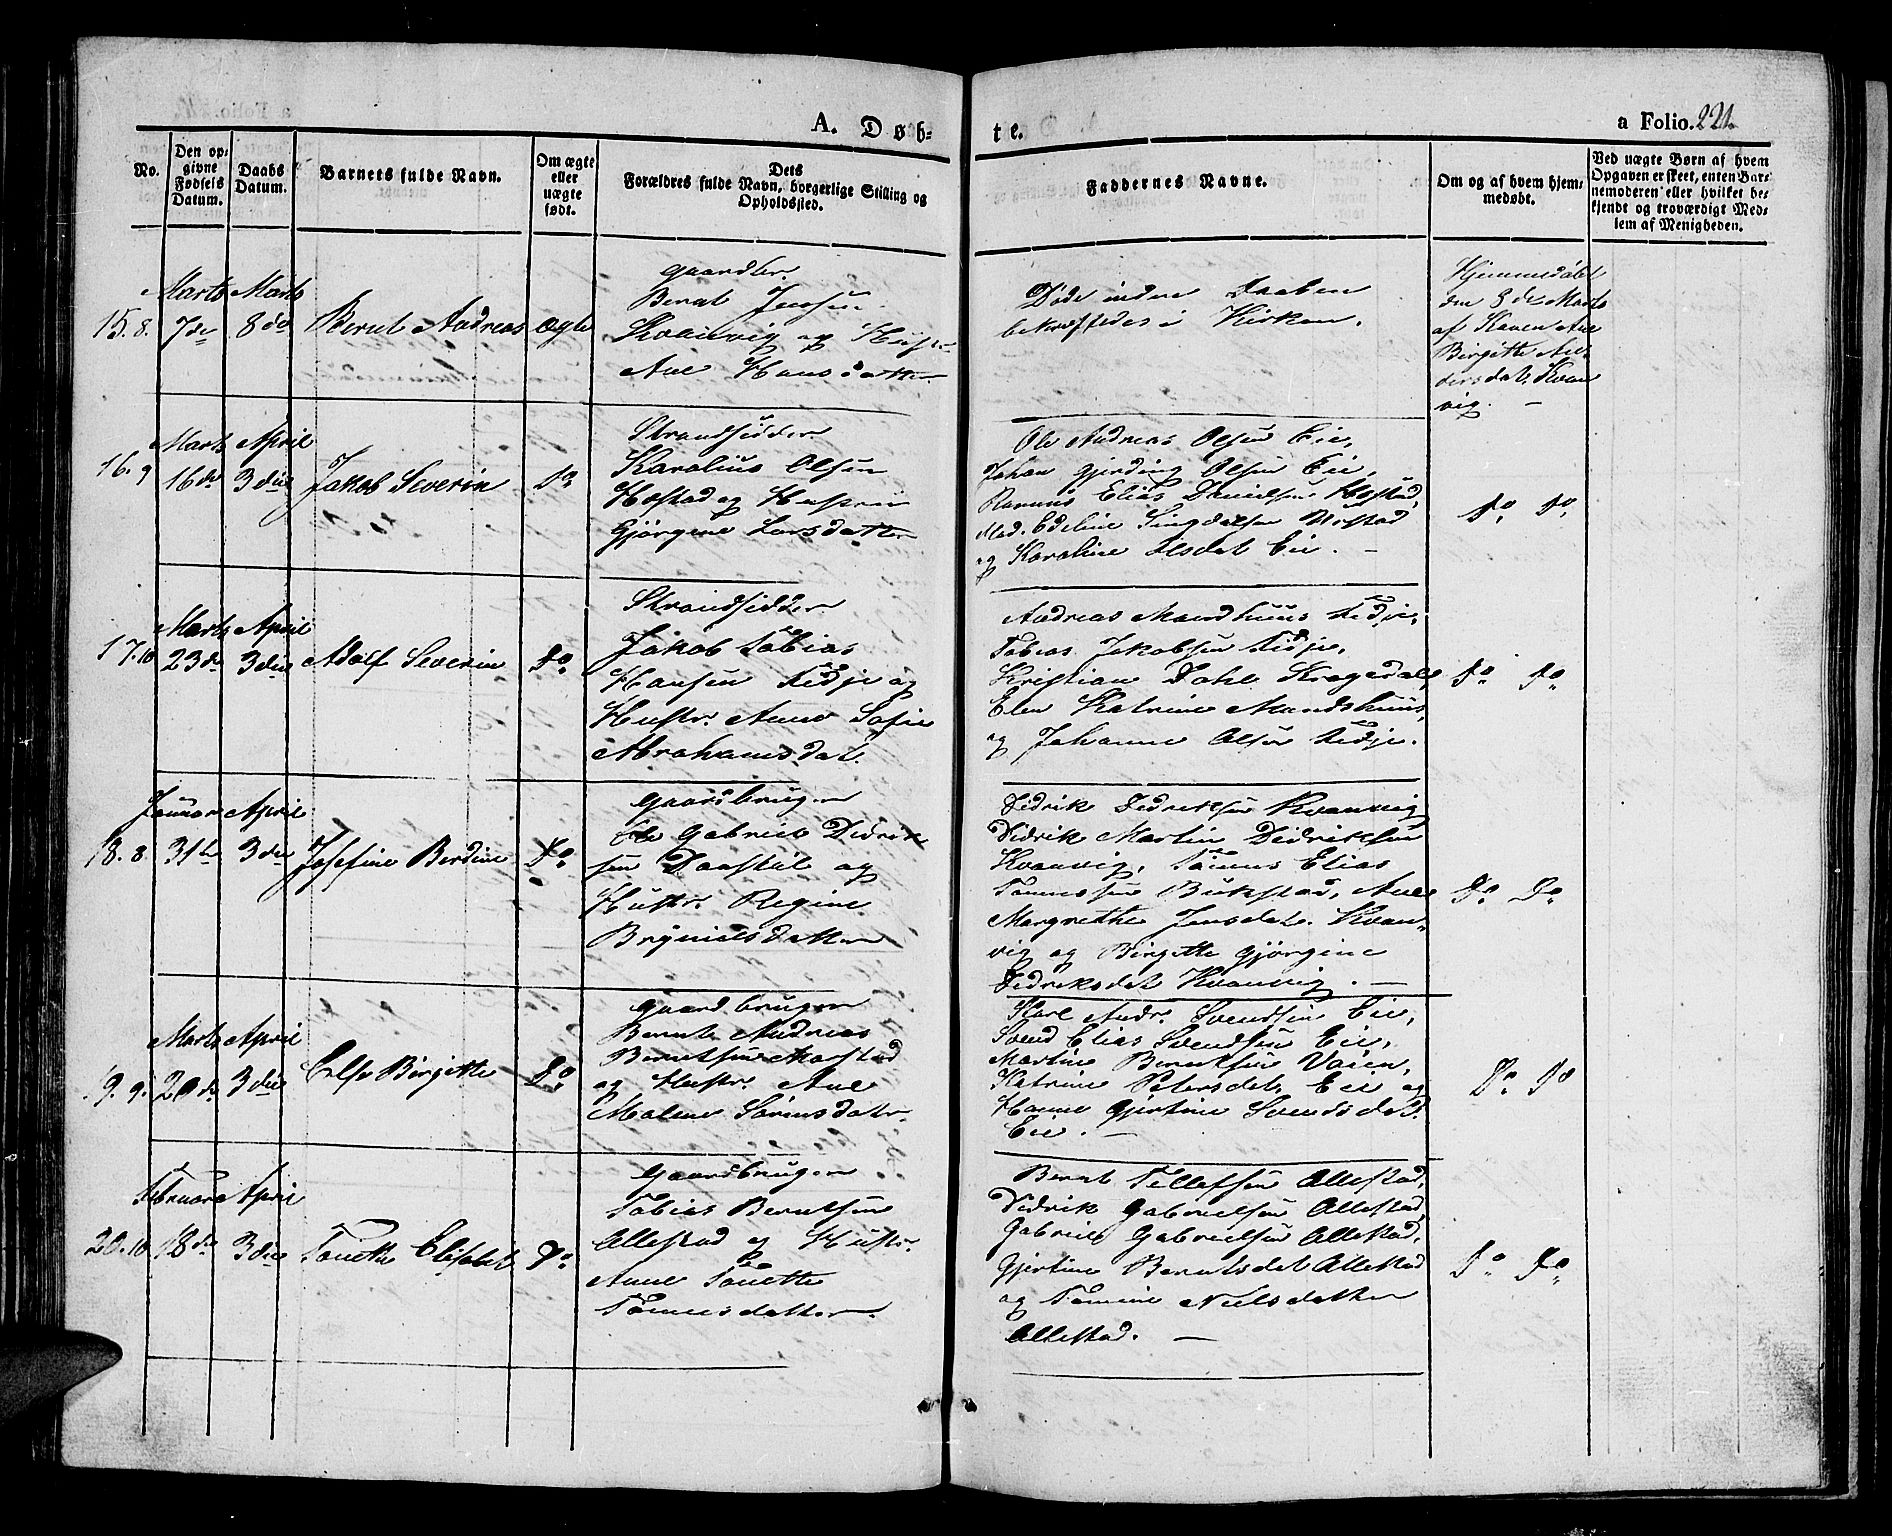 A. Døb-
te.
a Folio. 221.
No.
Den op-
givne
Fødsels
Datum.
Daabs
Datum.
Barnets fulde Navn.
Om ægte
eller
uægte
født.
Dets
Forældres fulde Navn, borgerlige Stilling og
Opholdssted.
Faddernes Navne.
Om og af hvem hjem-
medøbt.
Ved uægte Børn af hvem
Opgaven er skeet, enten Bar-
nemoderen eller hvilket be-
kjendt og troværdigt Med-
lem af Menigheden.
15. 8.
Marts
7de
Marts
8de
Bernt Andreas
ægte
Gaardbr.
Bernt Jensen
Kvanvig og Hustr.
Ane Hansdatter
Døde inden Daaben
bekræftedes i Kirken.
Hjemmedøbt
den 8de Marts
af Karen Ane
Birgitte An-
dersdat. Kvan
vig. –
16. 9
Marts
16de
April
3die
Jakob Severin
Do
Strandsidder
Karolius Olsen
Hæstad og Hustru
Gjørgine Larsdatter
Ole Andreas Olsen Eie,
Johan Gjerding Olsen Eie,
Rasmus Elias Danielsen Hæstad,
Mad. Edeline Hæstad
og Karoline Olsdat Eie. –
Do. Do.
17. 10
Marts
23de
April
3die
Adolf Severin
Do.
Strandsidder
Jakob Tobias
Hansen Tidje og
Hustr. Anne Sofie
Abrahamsdat.
Andreas Mandhuus Tidje,
Tobias Jakobsen Tidje,
Kristian Dahl Kragedal,
Elen Katrine Mandshuus,
og Johanne Olsen Tidje.
Do. Do.
18. 8
Januar
31te
April
3die
Josefine Berdine
Do.
Gaardbruger
Ole Gabriel Didrik
sen Daastøl og
Hustr. Regine
Brynielsdatter
Didrik Didriksen Kvanvig
Didrik Martin Didriksen
Kvanvig, Tønnes Elias
Tønnessen Bukstad, Ane
Margrethe Jensdat. Kvan-
vig og Birgitte Gjørgine
Didriksdat Kvanvig. –
Do. Do.
19. 9.
Marts
20de
April
3die
Else Birgitte
Do.
Gaardbruger
Bernt Andreas
Berntsen
og Hustr. Ane
Malene Sørensdatr.
Karl Andr. Svendsen Eie,
Svend Elias Svendsen Eie,
Martine Berntsen
Katrine Petersdat. Eie og
Hanne Gjertine Svendsdat.
Eie. –
Do. Do
20. 10
Februar
18de
April
3die
Tonette Elisabet
Do.
Gaardbruger
Tobias Berntsen
Allestad og Hustr.
Anne Tonette
Tønnesdatter.
Bernt Tellefsen Allestad,
Didrik Gabrielsen Allestad,
Gabriel Gabrielsen Allestad,
Gjertine Berntsdat Allestad
og Tomine Nielsdatter
Allestad. –
Do. Do.